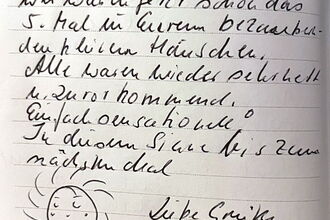 wir waren jetzt schon das
5. Mal in Eurem bezaubern-
den kleinen Häuschen.
Alle waren wieder sehr nett
u. zuvorkommend.
Einfach sensationell!
In diesem Sinne bis zum
nächsten Mal
Liebe Grüße